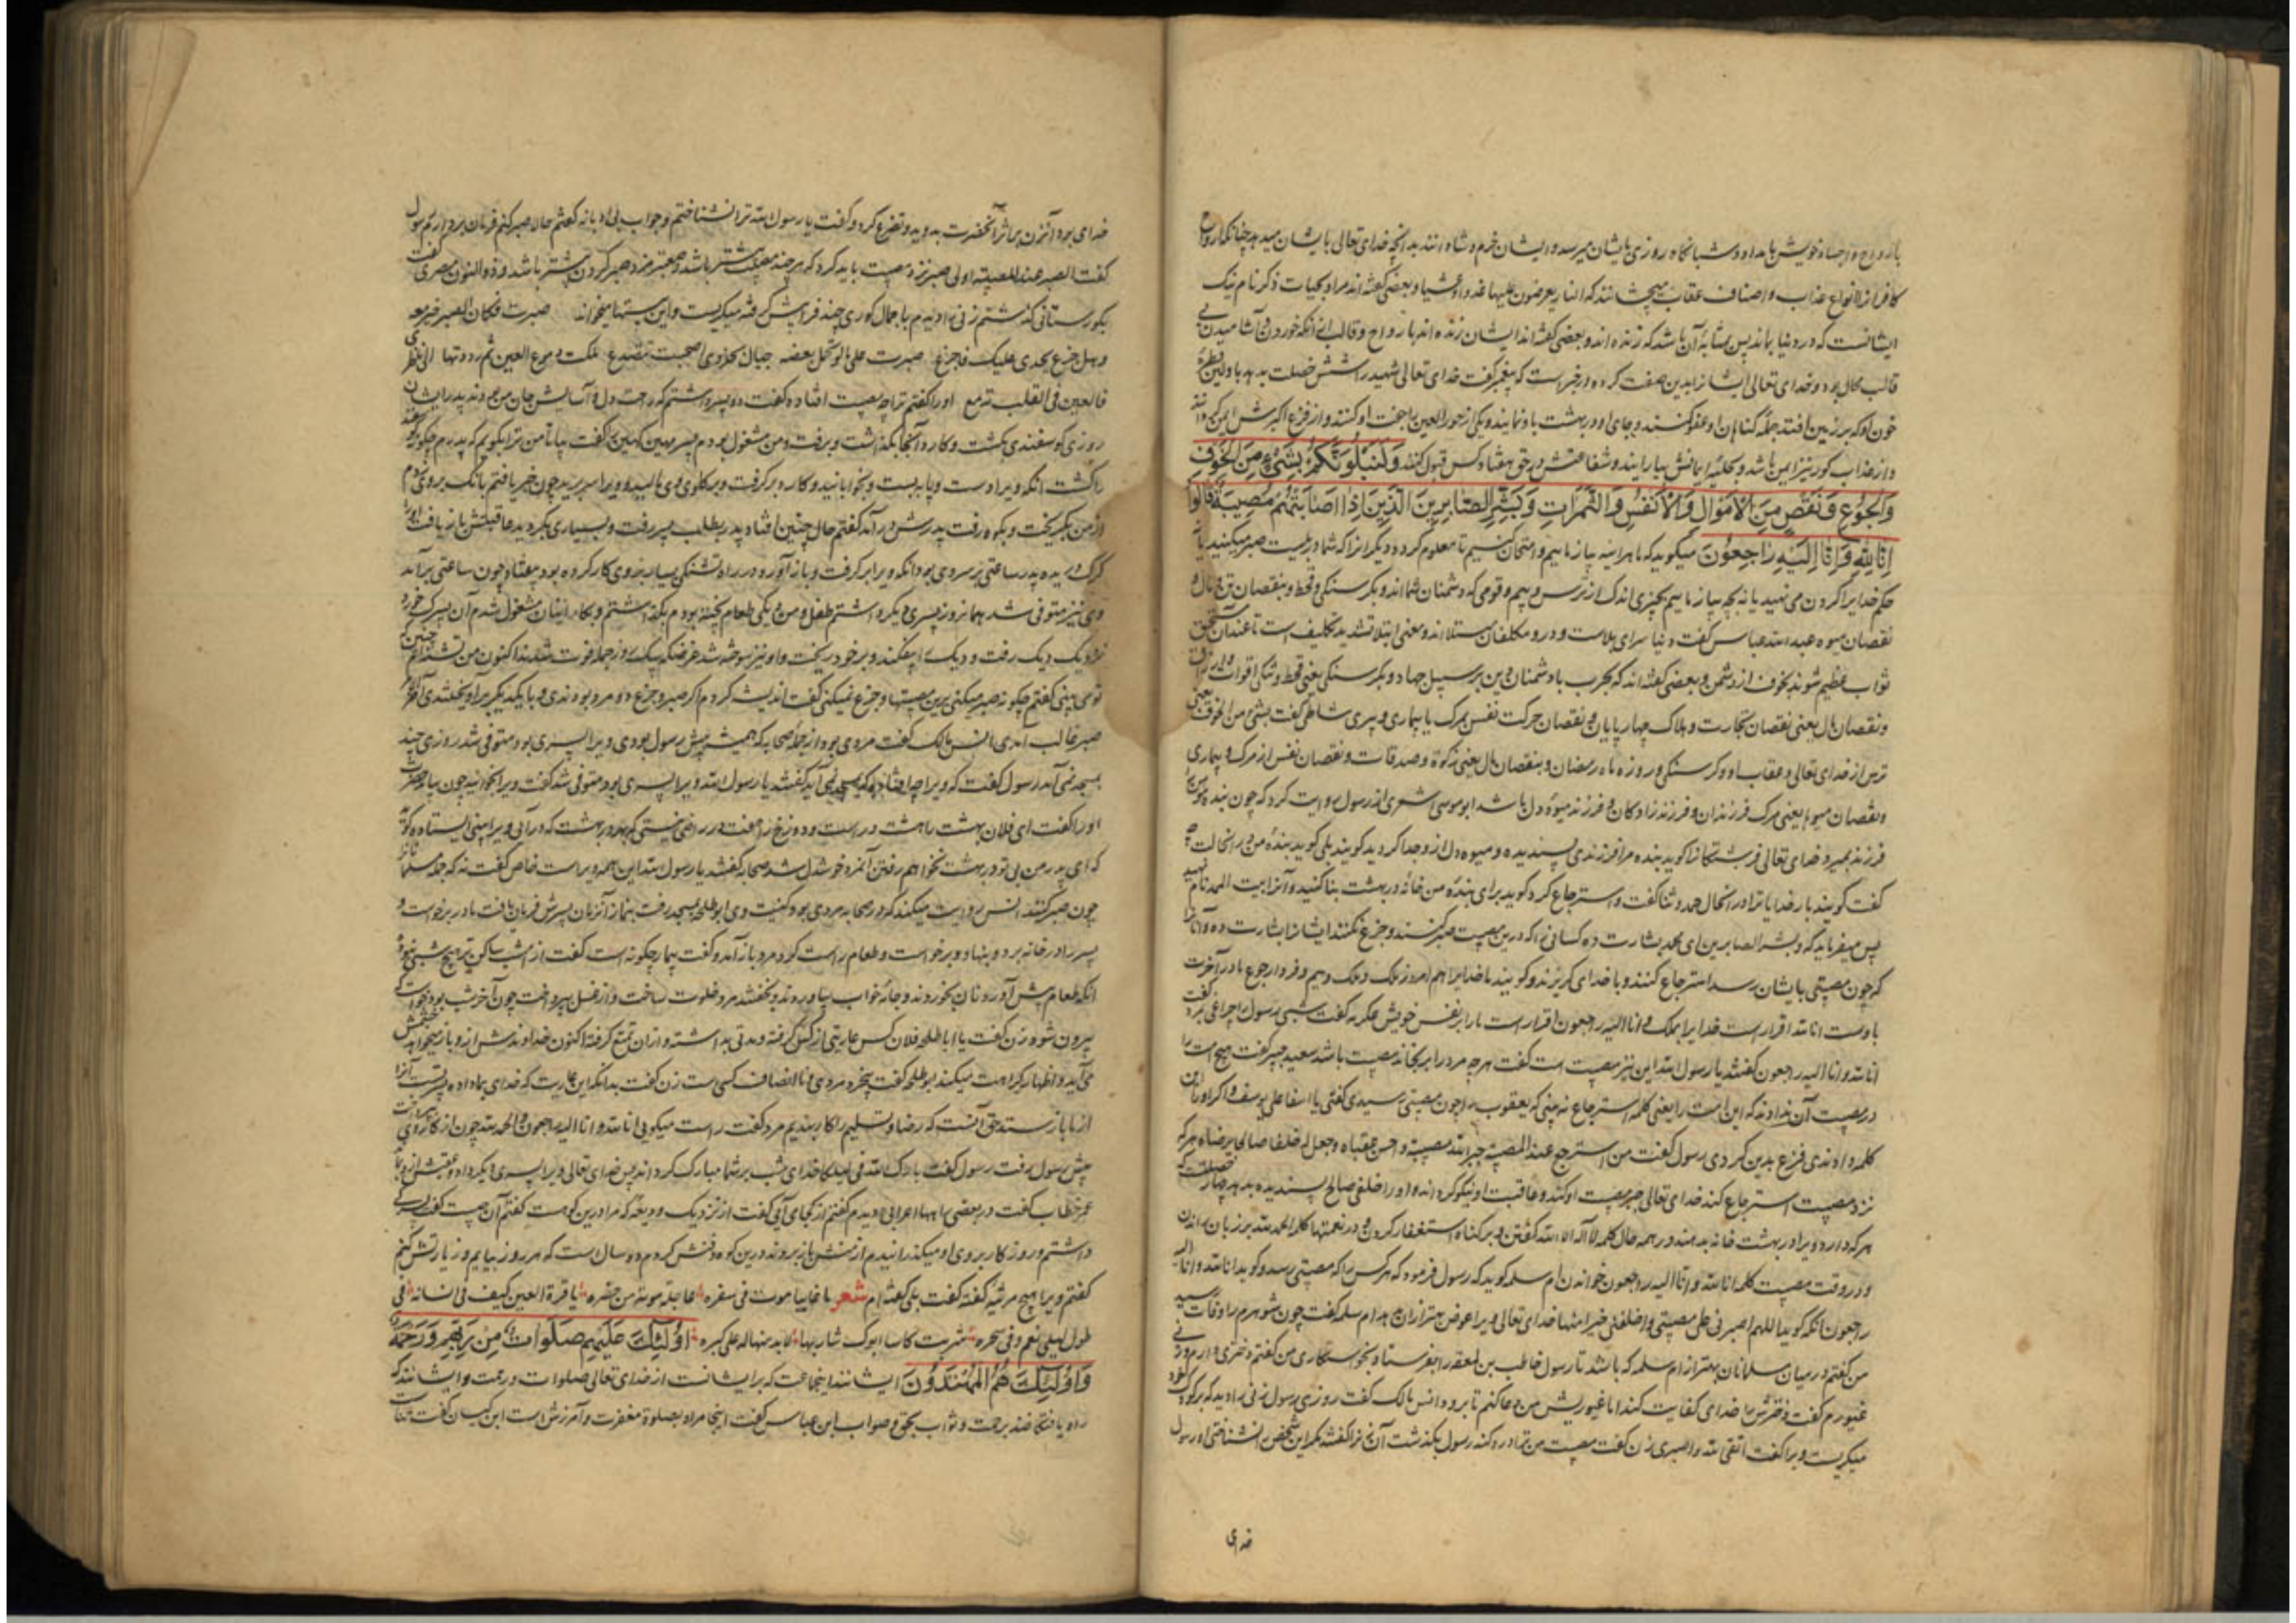 بارواح و اجساد خویش بامداد و شبانگاه روزی بایشان میرسد و ایشان خرم و شاد انند بدانچه خدای تعالی بایشان میدهد چنانکه ارواح
کافرانرا انواع عذاب و اصناف عقاب میچشانند که النار یعرضون علیها غدوا و عشیا و بعضی گفته اند مراد بحیات ذکر نام نیک
ایشانست که در دنیا بماند پس بمثابه آن باشد که زنده اند و بعضی گفته اند ایشان زنده اند بارواح و قالب
قالب محال بود و خدای تعالی ایشانرا بدین صفت کرده در خبر است که پیغمبر گفت خدای تعالی شهید را شش خصلت بدهد باولین قطره
خون او که بر زمین افتد جمله گناهان او عفو کنند و جای او در بهشت باو نمایند و یکی از حور العین را جفت او کنند و از فزع اکبرش ایمن گردانند
و از عذاب گور نیز ایمن باشد و بحلیه ایمانش بیارایند و شفاعتش در حق هفتاد کس قبول کنند وَلَنَبْلُوَنَّكُمْ بِشَيْءٍ مِنَ الْخَوْفِ
وَالْجُوعِ وَنَقْصٍ مِنَ الْأَمْوَالِ وَالْأَنْفُسِ وَالثَّمَرَاتِ وَبَشِّرِ الصَّابِرِينَ الَّذِينَ إِذَا أَصَابَتْهُمْ مُصِيبَةٌ قَالُوا
إِنَّا لِلَّهِ وَإِنَّا إِلَيْهِ رَاجِعُونَ میگوید که ما هراینه بیازماییم و امتحان کنیم تا معلوم گردد دیگرانرا که شما در بلیت صبر میکنید یا
حکم خدایرا گردن می نهید یا نه بچه بیازماییم بچیزی اندک از ترس و بیم و قومی که دشمنان شما اند و بگرسنگی و قحط و بنقصان تن و مال و
نقصان میوه عبد الله عباس گفت دنیا سرای بلاست و درو مکلفان مبتلا اند و معنی ابتلا تشدید تکلیف است تا عند آن مستحق
ثواب عظیم شوند بخوف از دشمن و بعضی گفته اند که بحرب با دشمنان دین بر سبیل جهاد و بگرسنگی یعنی قحط و تنگی اقوات و ارزاق
و نقصان مال یعنی نقصان تجارت و هلاک چهار پایان و نقصان حرکت نفس بمرگ یا بیماری و پیری شافعی گفت بشیء من الخوف یعنی
ترس از خدای تعالی و عقاب او و گرسنگی و روزه ماه رمضان و بنقصان مال یعنی زکوة و صدقات و نقصان نفس از مرگ و بیماری
و نقصان میوها یعنی مرگ فرزندان و فرزند زادگان و فرزند میوه دل باشد ابو موسی اشعری از رسول روایت کرد که چون بنده مومن را
فرزند بمیرد خدای تعالی فرشتگانرا گوید بنده مرا فرزندی پسندیده و میوه دل ازو جدا کردید گویند بلی گوید بنده من در انحالت چه
گفت گویند بار خدایا ترا در انحال حمد و ثنا گفت و استرجاع کرد گوید برای بنده من خانه در بهشت بنا کنید و آنرا بیت الحمد نام نهید
پس میفرماید که و بشر الصابرین ای محمد بشارت ده کسانی را که درین مصیبت صبر کنند و جزع نکنند ایشانرا بشارت ده و آنانرا
که چون مصیبتی بایشان رسد استرجاع کنند و با خدای گریزند و گویند ما خدایرا هم امروز ملک و ملک وییم و فردا رجوع ما در آخرت
با اوست انا لله اقرار است خدایرا بملک و انا الیه راجعون اقرار است ما را بر نفس خویش عکرمه گفت شبی رسول را چراغی بمرد گفت
انا لله و انا الیه راجعون گفتند یا رسول الله این نیز مصیبت است گفت هرچه مرد را برنجاند مصیبت باشد سعید جبیر گفت هیچ امت را
در مصیبت آن ندادند که این امت را یعنی کلمه استرجاع نه بینی که یعقوب را چون مصیبتی رسیدی گفتی یا اسفا علی یوسف و اگر او را این
کلمه دادندی فزع بدین کردی رسول گفت من استرجع عند المصیبة جبر الله مصیبته و احسن عقباه و جعل له خلفا صالحا یرضاه هرکه
نزد مصیبت استرجاع کند خدای تعالی جبر مصیبت او کند و عاقبت او نیکو گرداند و او را خلفی صالح پسندیده بدهد چهار خصلت
هرکه دارد ویرا در بهشت خانه بدهند در همه حال کلمه لا اله الا الله گفتن و بر گناه استغفار کردن و در نعمتها کلمه الحمد لله بر زبان راندن
و در وقت مصیبت کلمه انا لله و انا الیه راجعون خواندن ام سلمه گوید که رسول فرمود که هر کس را که مصیبتی رسد و گوید انا لله و انا الیه
راجعون انگه گوید اللهم اصبرنی علی مصیبتی و اخلفنی خیرا منها خدای تعالی ویرا عوض بهتر ازان بدهد ام سلمه گفت چون شوهرم را وفات رسید
من گفتم در میان مسلمانان بهتر از ام سلمه که باشد تا رسول حاطب بن بلتعه را بفرستاد بخواستگاری من گفتم دختری دارم و زنی
غیورم گفت دخترش را خدای کفایت کند اما غیوریش من دعا کنم تا برود انس مالک گفت روزی رسول زنی را دید که بر گور
میگریست ویرا گفت اتقی الله و اصبری زن گفت مصیبت من ترا درد نکند رسول بگذشت آن زنرا گفتند مگر این شخص را نشناختی او رسول
خدای
خدای بود آنزن بر اثر آنحضرت بدوید و تضرع کرد و گفت یا رسول الله ترا نشناختم و جواب بی ادبانه گفتم حالا صبر کنم فرمان بردارم رسول
گفت الصبر عند المصیبة اولی صبر نزد مصیبت باید کرد که هرچند مصیبت بیشتر باشد صبر نزد صبر کردن بیشتر باشد و ذو النون مصری گفت
بگورستانی گذشتم زنی را دیدم با جمال گوری چند فرا پیش گرفته میگریست و این بیتها میخواند صبرت فکان الصبر خیر مغبة
و هل جزع یجدی علیک فاجزع صبرت علی ما لو تحمل بعضه جبال بخزوی اصبحت تتصدع ملکت دموع العین ثم رددتها الی ناظری
فالعین فی القلب تدمع او را گفتم ترا چه مصیبت افتاده گفت دو پسر داشتم که راحت دل و آسایش جان من بودند پدر ایشان
روزی گوسفندی بکشت و کارد آنجا بگذاشت و برفت و من مشغول بودم پسر مهین کهین را گفت بیا تا من ترا بگویم که پدرم چگونه گوسفند
را کشت انگه ویرا دست و پا ببست و بخوابانید و کارد بر گرفت و بر گلوی وی مالید و ویرا سر ببرید چون خبر یافتم بانگ بروی زدم
از من بگریخت و بکوه رفت پدرش در آمد گفتم حال چنین افتاد پدر بطلب پسر رفت و بسیاری بگردید عاقبتش باز یافت او را
گرگ دریده پدر ساعتی بر سر وی بود انگه ویرا بر گرفت و باز آورد در راه تشنگی بسیار بروی کار کرده بود بیفتاد چون ساعتی برآمد
وی نیز متوفی شد همانروز پسری دیگر داشتم طفل و من دیگی طعام پخته بودم بگذاشتم و بکار اینان مشغول شدم آن پسرک خورد
نزدیک دیک رفت و دیک را بیفکند و بر خود ریخت و او نیز سوخته شد غرضکه بیک روز جمله فوت شدند اکنون من تنها چنین
تو می بینی گفتم چگونه صبر میکنی برین مصیبتها و جزع نمیکنی گفت اندیشه کردم اگر صبر و جزع دو مرد بودندی و با یکدیگر برآویختندی آخر
صبر غالب آمدی انس مالک گفت مردی بود از جمله صحابه که همیشه پیش رسول بودی و ویرا پسری بود متوفی شد روزی چند
بمسجد نمی آمد رسول گفت که ویرا چه افتاد که بمسجد نمی آید گفتند یا رسول الله ویرا پسری بود متوفی شد گفت ویرا بخوانید چون بیامد حضرت
او را گفت ای فلان بهشت را هشت در است و دوزخ را هفت در راضی نیستی که بهر در بهشت که در آیی ویرا بینی ایستاده گوید
که ای پدر من بی تو در بهشت نخواهم رفتن آنمرد خوشدل شد صحابه گفتند یا رسول الله این همه ویراست خاص گفت نه که جمله مسلمانانرا
چون صبر کنند انس روایت میکند که در صحابه مردی بود کنیت وی ابو طلحه بمسجد رفت بنماز آنزمان پسرش فرمان یافت مادر برخواست و
پسر را در خانه برد و بنهاد و برخواست و طعام راست کرد مرد باز آمد و گفت بیمار چگونه است گفت از امشب ساکن تر هیچ شبی نبوده
انگه طعام پیش آورد و نان بخوردند و جامه خواب بیاوردند و بخفتند مرد خلوت ساخت و از غسل بپرداخت چون آخر شب بود خواست که
بیرون شود زن گفت یا ابا طلحه فلان کس عاریتی از کسی گرفته و مدتی بداشته و ازان تمتع گرفته اکنون خداوندش ازو باز میخواهد خشمش
می آید و اظهار کراهت میکند ابو طلحه گفت بیخرد مردی نا انصاف کسی ست زن گفت بدانکه این عاریت که خدای بما داده بود آنرا
از ما باز ستد حق آنست که رضا و تسلیم را کار بندیم مرد گفت راست میگویی انا لله و انا الیه راجعون و الحمد لله چون از کار وی بپرداخت
پیش رسول رفت رسول گفت بارک الله فی لیلتکما خدای شب بر شما مبارک گرداند پس خدای تعالی ویرا پسری دیگر داد و عقبش ازو بماند
عمر خطاب گفت در بعضی راهها اعرابی را دیدم گفتم از کجا می آیی گفت از نزدیک ودیعه که مرا درین کوهست گفتم آن چیست گفت پسری
داشتم و روزگار بروی او میگذرانیدم از منش باز بردند درین کوه دفنش کردم ده سال است که هر روز بیایم و زیارتش کنم
گفتم ویرا هیچ مرثیه گفته گفت بلی گفته ام شعر یا غایبا ما یؤب من سفره عاجله موته من صغره یا قرة العین کیف فی انسانه فی
طول لیلی نعم و فی سحره شربت کاسا ابوک شاربها لا بد منها له علی کبره أُولَٰئِكَ عَلَيْهِمْ صَلَوَاتٌ مِنْ رَبِّهِمْ وَرَحْمَةٌ
وَأُولَٰئِكَ هُمُ الْمُهْتَدُونَ ایشانند اینجماعت که برایشانست از خدای تعالی صلوات و رحمت و ایشانند که
راه یافتگانند برحمت و ثواب بحق و صواب ابن عباس گفت اینجا مراد بصلوة مغفرت و آمرزش است ابن کیسان گفت